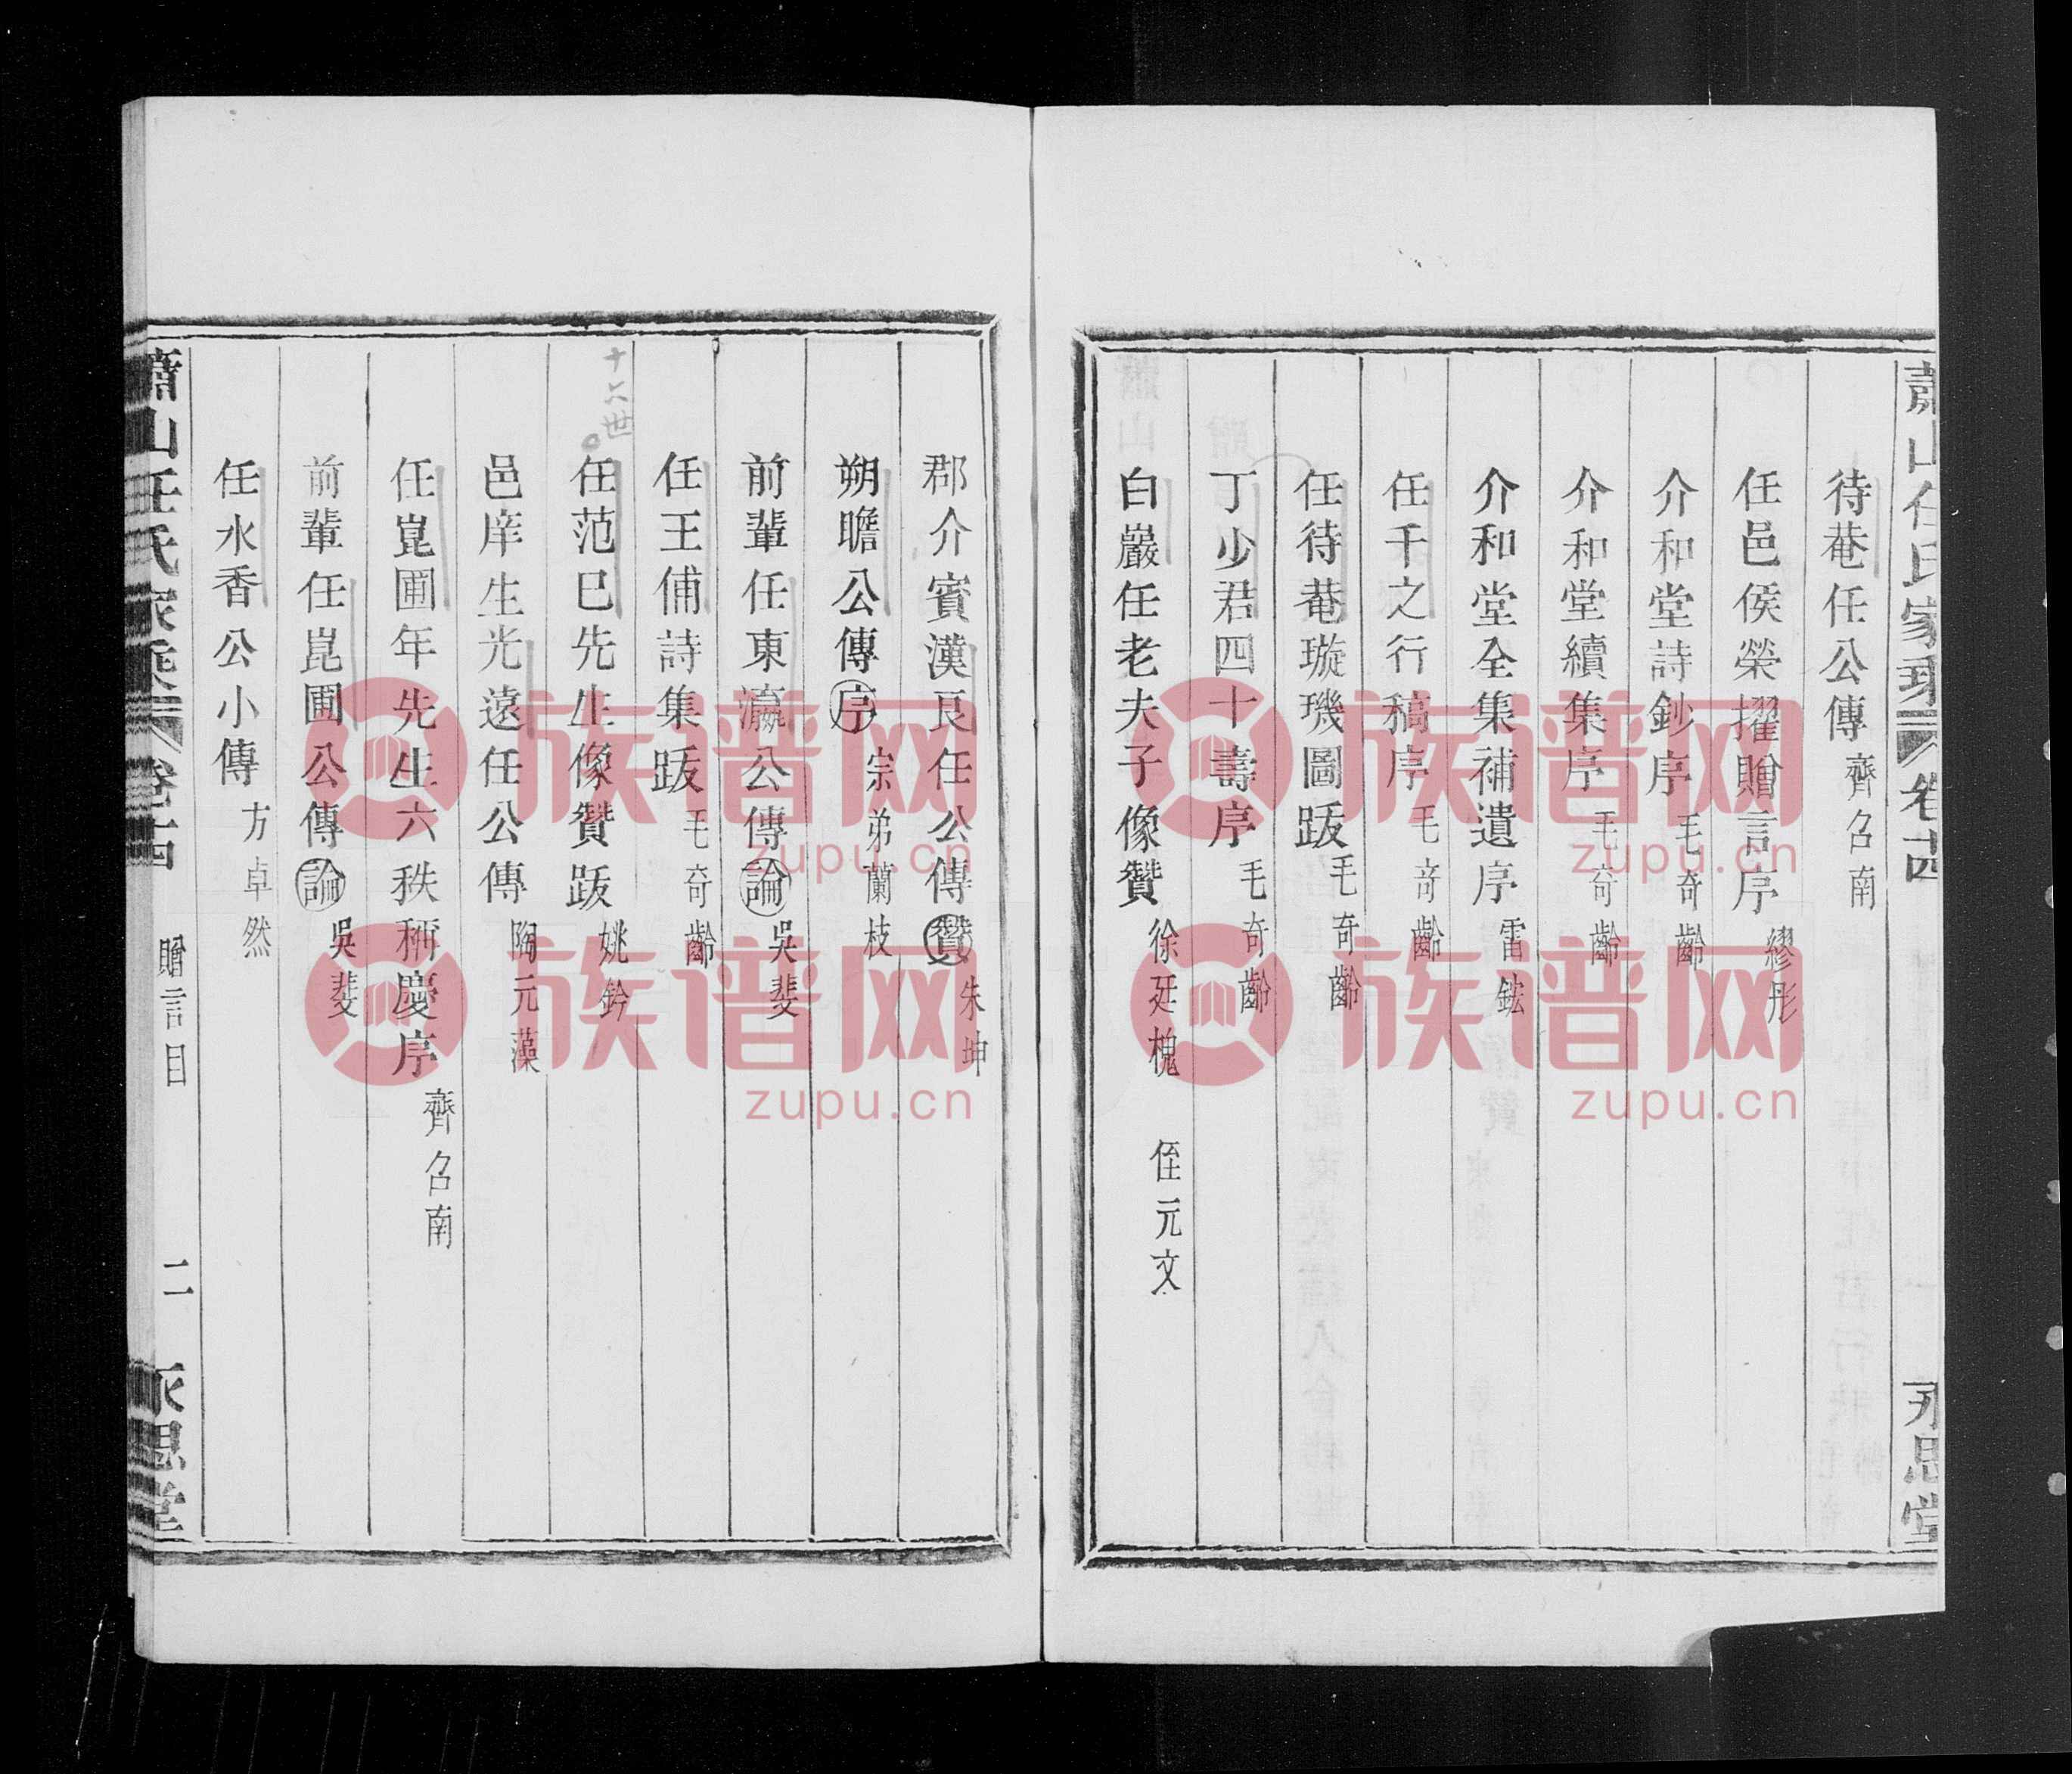 蕭山任氏家乘 卷十四 永思堂
待菴任公傳 齊召南
任邑侯榮擢贈言序 繆彤
介和堂詩鈔序 毛奇齡
介和堂續集序 毛奇齡
介和堂全集補遺序 雷鋐
任千之行稿序 毛奇齡
任待菴璇璣圖跋 毛奇齡
丁少君四十壽序 毛奇齡
白巖任老夫子像贊 徐廷槐 侄元文
郡介賓漢良任公傳贊 朱坤
朔瞻公傳序 宗弟蘭枝
前輩任東瀛公傳論 吳斐
任王俌詩集跋 毛奇齡
十六世
任范巳先生像贊跋 姚鈐
邑庠生光遠任公傳 陶元藻
任崑圃年先生六秩稱慶序 齊召南
前輩任崑圃公傳論 吳斐
任水香公小傳 方卓然
蕭山任氏家乘 卷十四 贈言目 二 永思堂
族谱网
zupu.cn
族谱网
zupu.cn
族谱网
zupu.cn
族谱网
zupu.cn